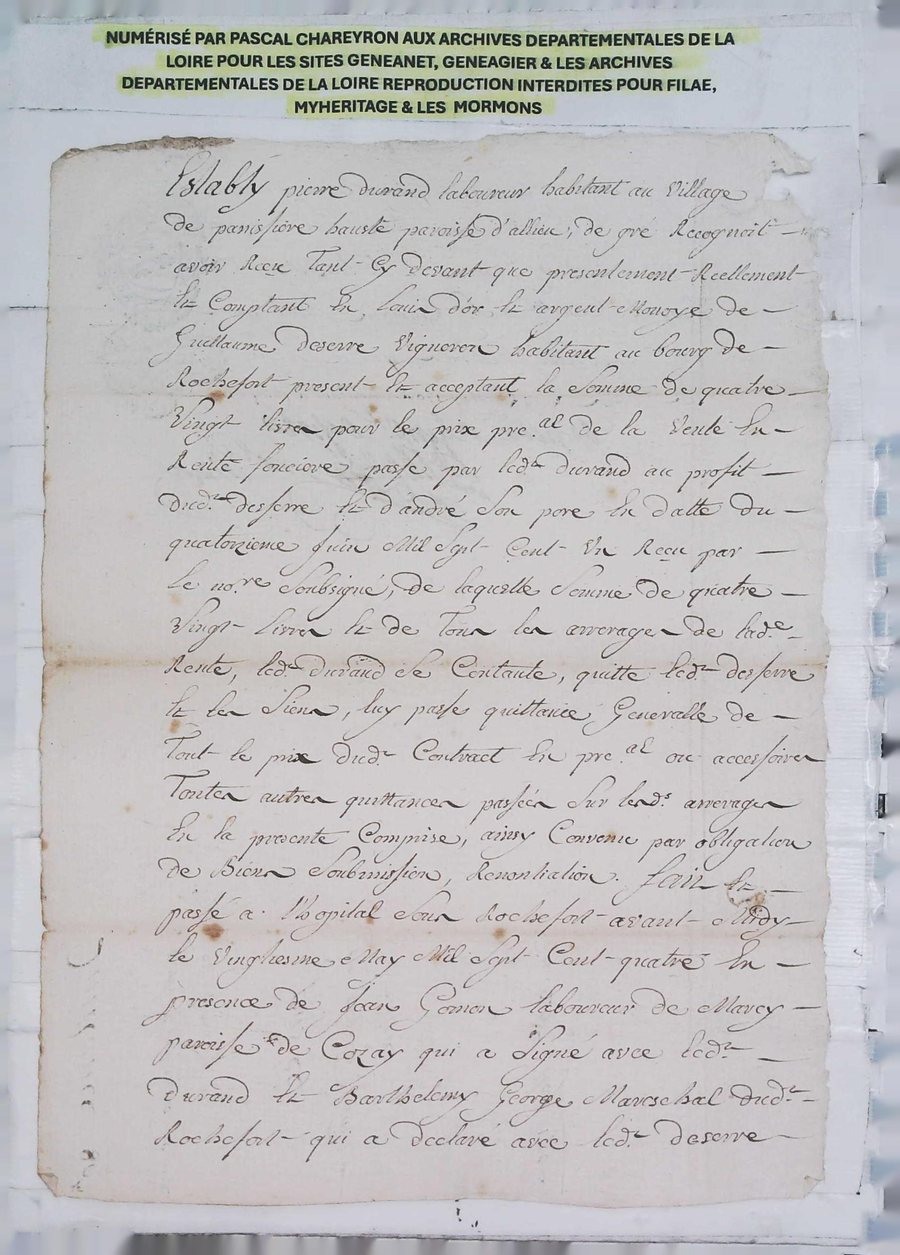 NUMÉRISÉ PAR PASCAL CHAREYRON AUX ARCHIVES DEPARTEMENTALES DE LA
LOIRE POUR LES SITES GENEANET, GENEAGIER & LES ARCHIVES
DEPARTEMENTALES DE LA LOIRE REPRODUCTION INTERDITES POUR FILAE,
MYHERITAGE & LES MORMONS
Estably pierre durand laboureur habitant au Village
de panissiere hauste paroisse d'allieu, de gré Recognoit
avoir Receu Tant Cy devant que presentement Reellement
Et Comptant En Louis d'or Et argent Monoye de
Guillaume deserre Vigneron habitant au bourg de
Rochefort present Et acceptant la Somme de quatre
Vingt livres pour le prix pre.al de la Vente En
Rente fonciere passe par led.t durand au profit
dud.t desserre Et d'andré Son pere En datte du
quatorzieme Juin Mil Sept Cent Un Receu par
Le no.re Soubsigné, de laquelle Somme de quatre
Vingt Livres Et de Tous les arrerages de lad.e
Rente, led.t durand Se Contante, quitte led.t desserre
Et les Siens, luy passe quittance Generalle de
Tout le prix dud.t Contract En pre.al ou accessoires
Toutes autres quittances passées Sur lesd.s arrerages
En la presente Comprise, ainsy Convenu par obligation
de Biens Soubmission, Renontiation. fait Et
passé a l'hopital Sous Rochefort avant Midy
le Vingtiesme May Mil Sept Cent quatre En
presence de Jean Gomon laboureur de Marcy
paroisse de Cozay qui a Signé avec led.t
durand Et Barthelemy George Mareschal dud.t
Rochefort qui a declaré avec led.t deserre